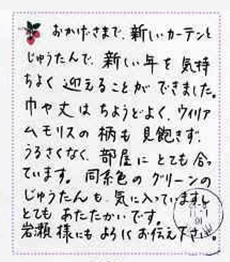 おかげさまで、新しいカーテンと
じゅうたんで、新しい年を気持
ちよく迎えることができました。
巾や丈はちょうどよく、ウィリア
ムモリスの柄も見飽きず、
うるさくなく、部屋にとても合っ
ています。同系色のグリーンの
じゅうたんも、気に入っていますし
とてもあたたかいです。
岩瀬様にもよろしくお伝え下さい。